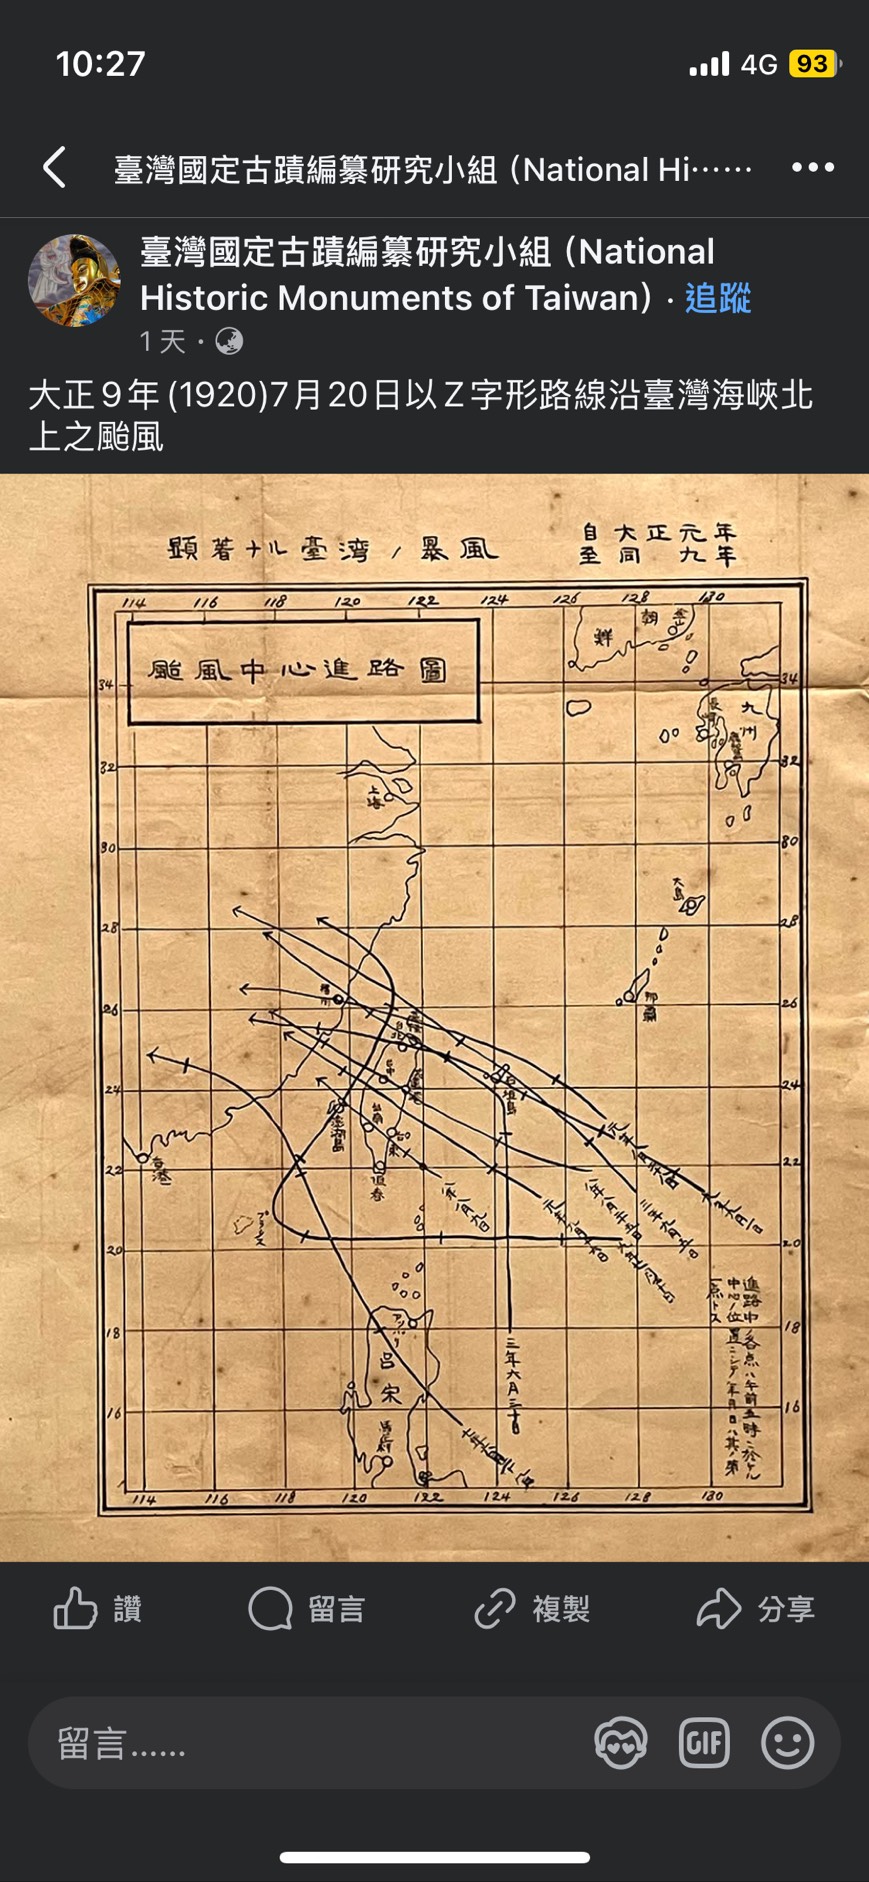 10:27
4G
93
臺灣國定古蹟編纂研究小組 (National Hi⋯⋯
臺灣國定古蹟編纂研究小組 (National
Historic Monuments of Taiwan) · 追蹤
1 天 ·
大正9年(1920)7月20日以Z字形路線沿臺灣海峽北
上之颱風
顕著ナル臺湾ノ暴風
自大正元年
至同九年
114 116 118 120 122 124 126 128 130
颱風中心進路圖
朝
鮮
釜山
34 34
九
州
長崎
32 32
上海
30 30
大島
28 28
福州
那覇
26 26
台北
台中
石垣島
24 24
澎湖島
台南
台東
香港
恒春
22 22
プラタス
八年八月九日
20 20
進路中ノ各点ハ午前五時ニ於ケル
中心ノ位置ニシテ年月日ハ其ノ第
一点トス
アパリ
18 18
呂
宋
三年六月三十日
16 16
114 116 118 120 122 124 126 128 130
讚
留言
複製
分享
留言......
GIF